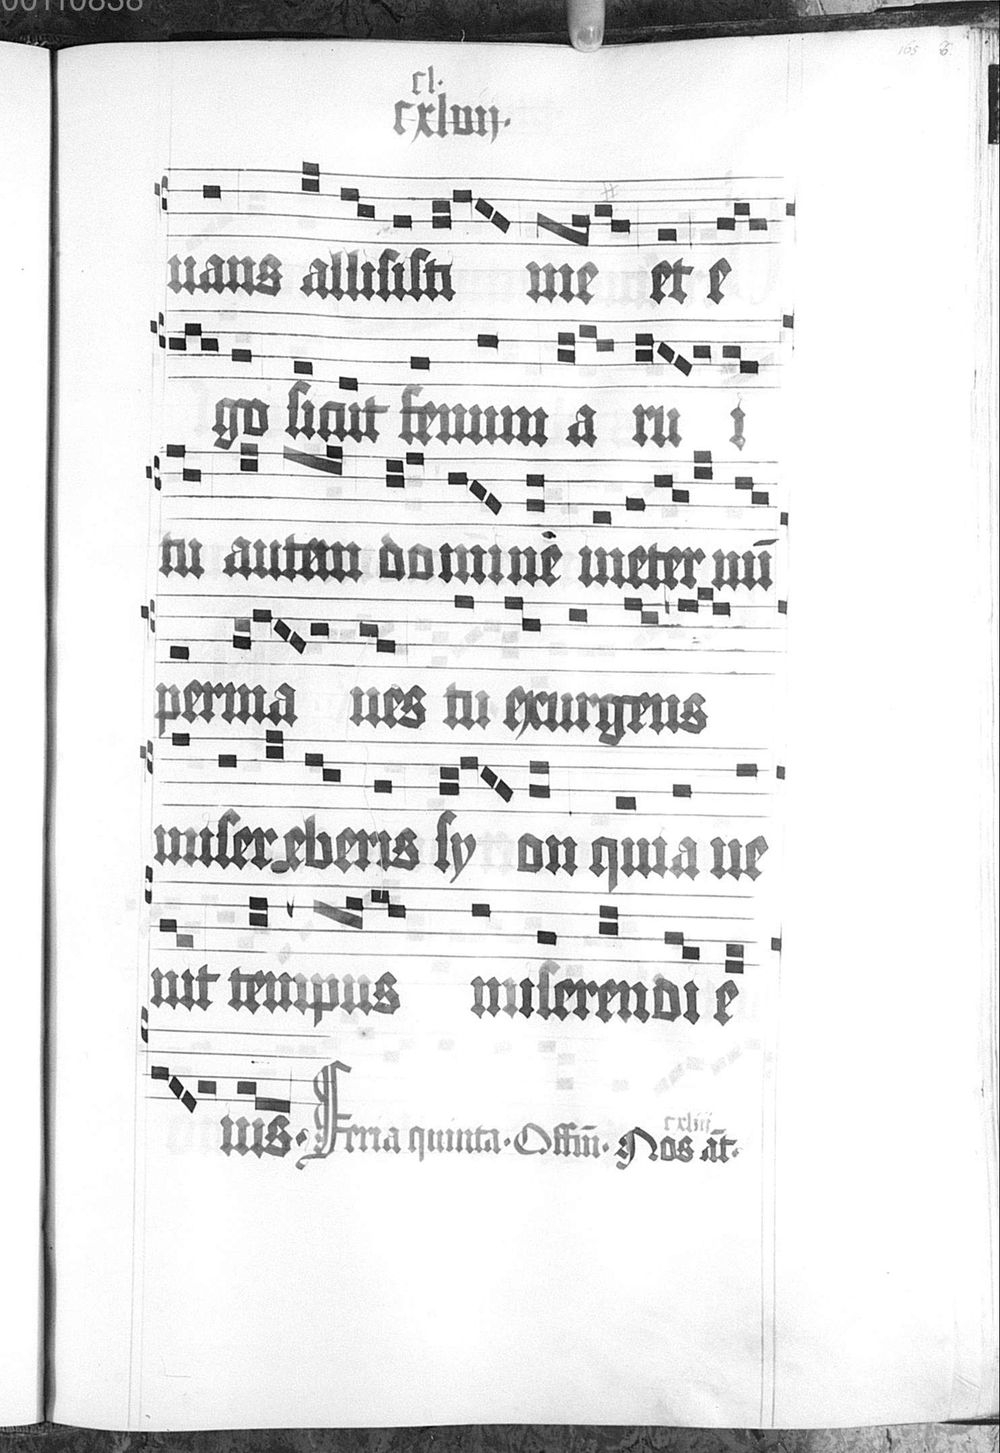 00110838
165
cl.
cxlvii.
uans allisisti me et e
go sicut fenum a ru i
tu autem domine ineter nū
perma nes tu exurgens
misereberis sy on quia ue
nit tempus miserendi e
ius. Feria quinta. Offm̄. Nos āt.
cxliii